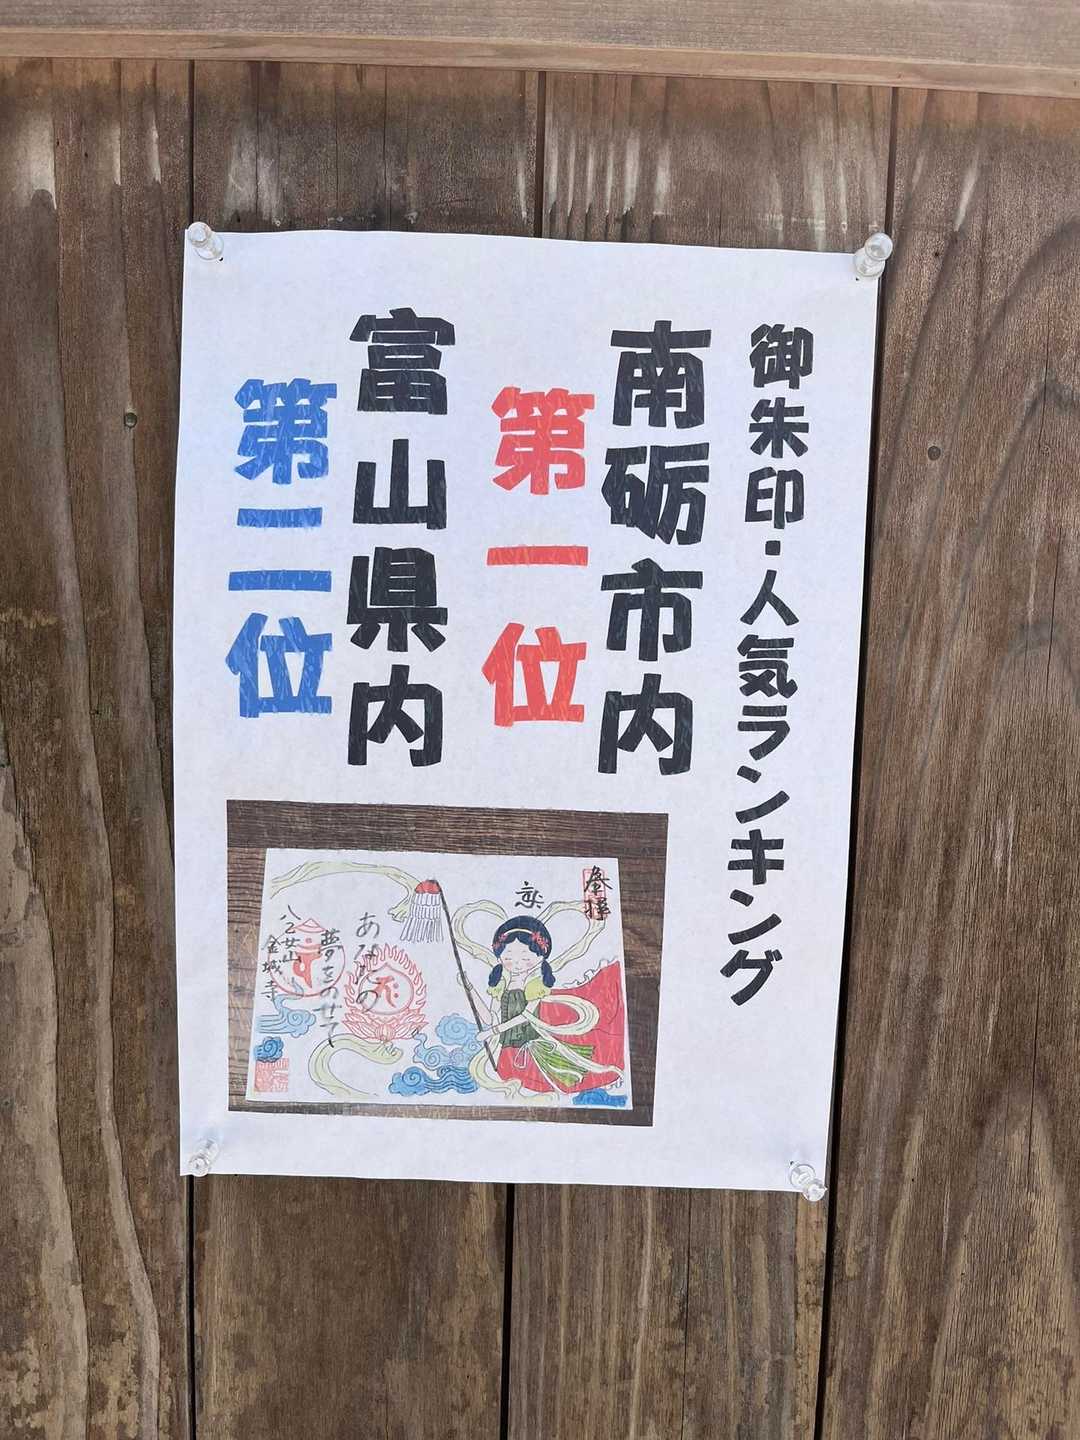 御朱印・人気ランキング
南砺市内
第一位
富山県内
第二位
奉拝
あなたの
夢をのせて
八乙女山
金城寺